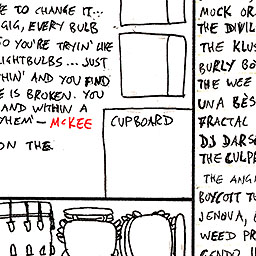 E TO CHANGE IT...
GIG, EVERY BULB
SO YOU'RE TRYIN' LIKE
LIGHTBULBS... JUST
THIN' AND YOU FIND
E IS BROKEN. YOU
AND WITHIN A
YHEM' - McKEE
ON THE
CUPBOARD
MOCK OR
THE DIVIL
THE KLUS
BURLY BO
THE WEE
UNA BES
FRACTAL
DJ DARS
THE CULPR
THE ANGR
BOYCOTT T
JENOVA,
WEED PR
GENDO